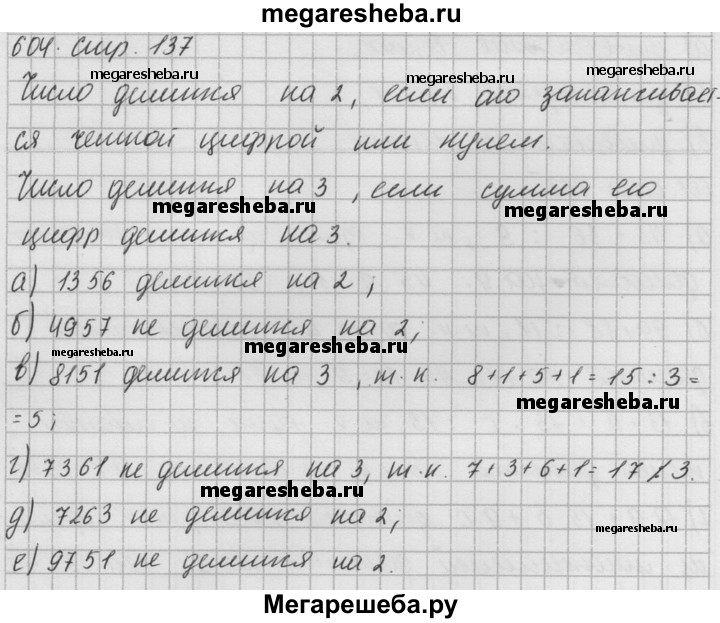 megaresheba.ru
604. стр. 137
megaresheba.ru
megaresheba.ru
megaresheba.ru
Число делится на 2, если оно заканчивает-
ся четной цифрой или нулем.
Число делится на 3, если сумма его
megaresheba.ru
megaresheba.ru
цифр делится на 3.
а) 1356 делится на 2;
б) 4957 не делится на 2;
megaresheba.ru
megaresheba.ru
в) 8151 делится на 3, т.к. 8+1+5+1=15:3=
megaresheba.ru
=5;
г) 7361 не делится на 3, т.к. 7+3+6+1=17 ⁒ 3.
megaresheba.ru
д) 7263 не делится на 2;
megaresheba.ru
е) 9751 не делится на 2.
Мегарешеба.ру